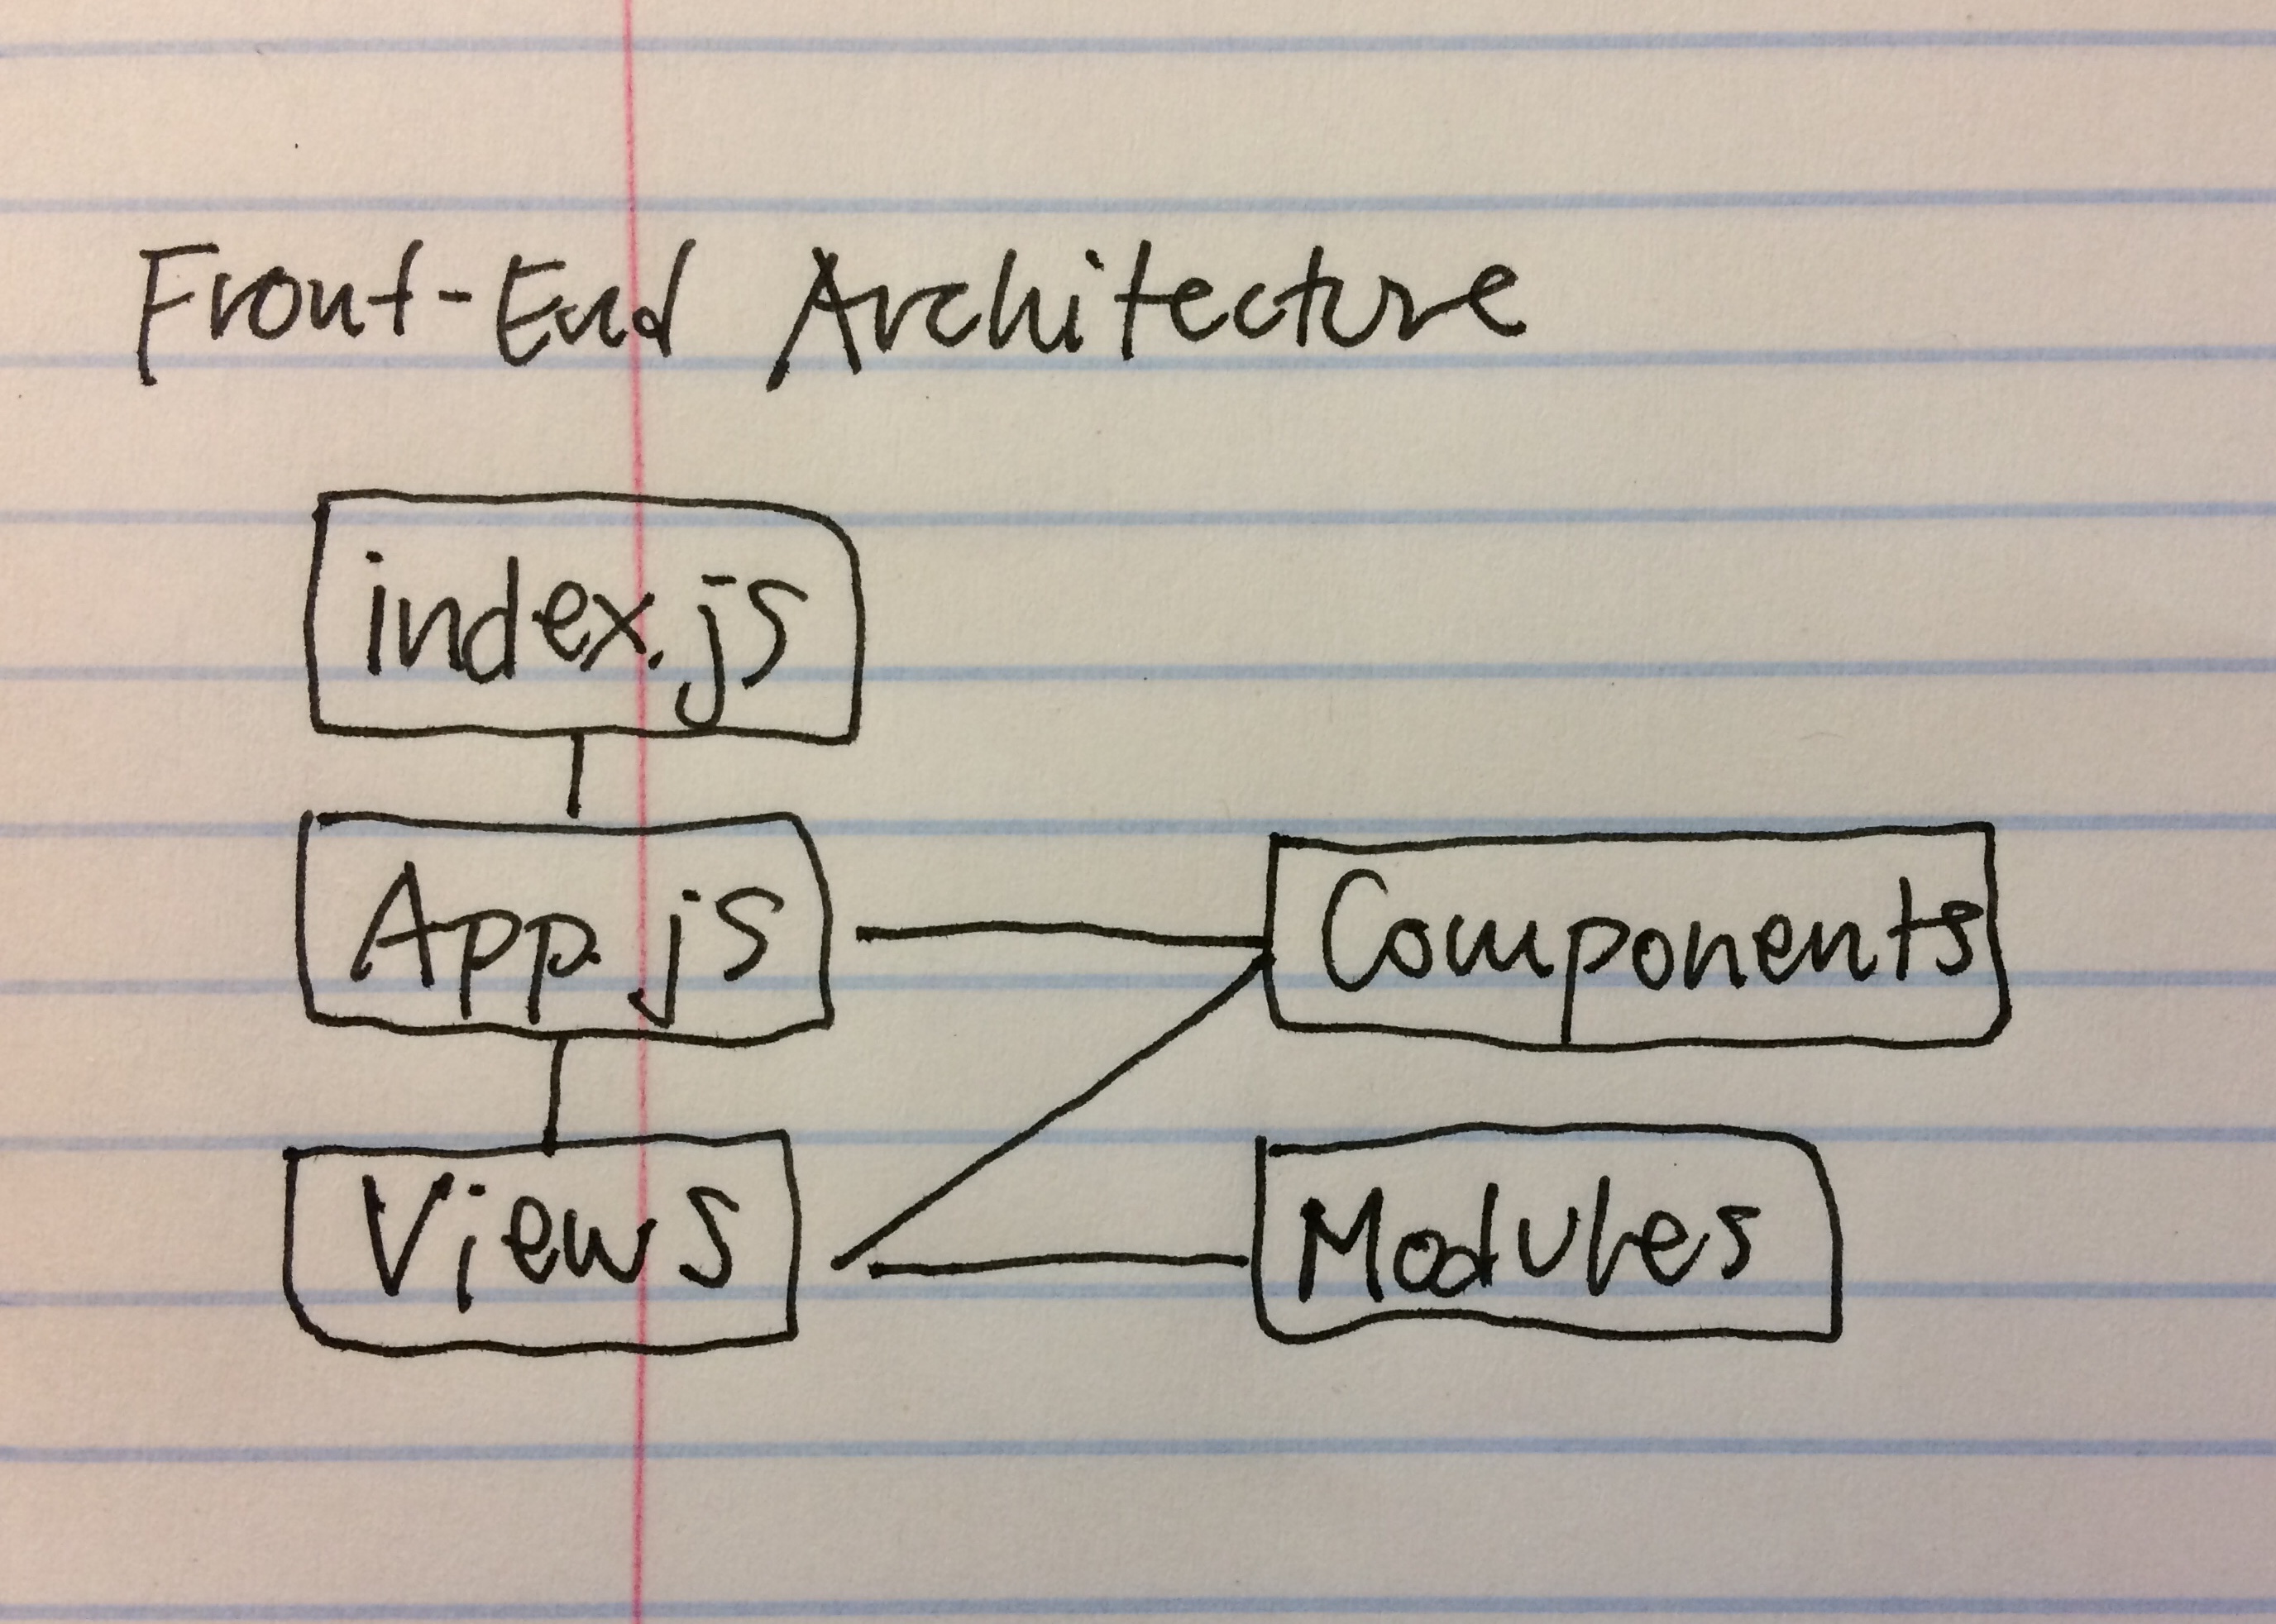 Front-End Architecture
index.js
App.js
Components
Views
Modules